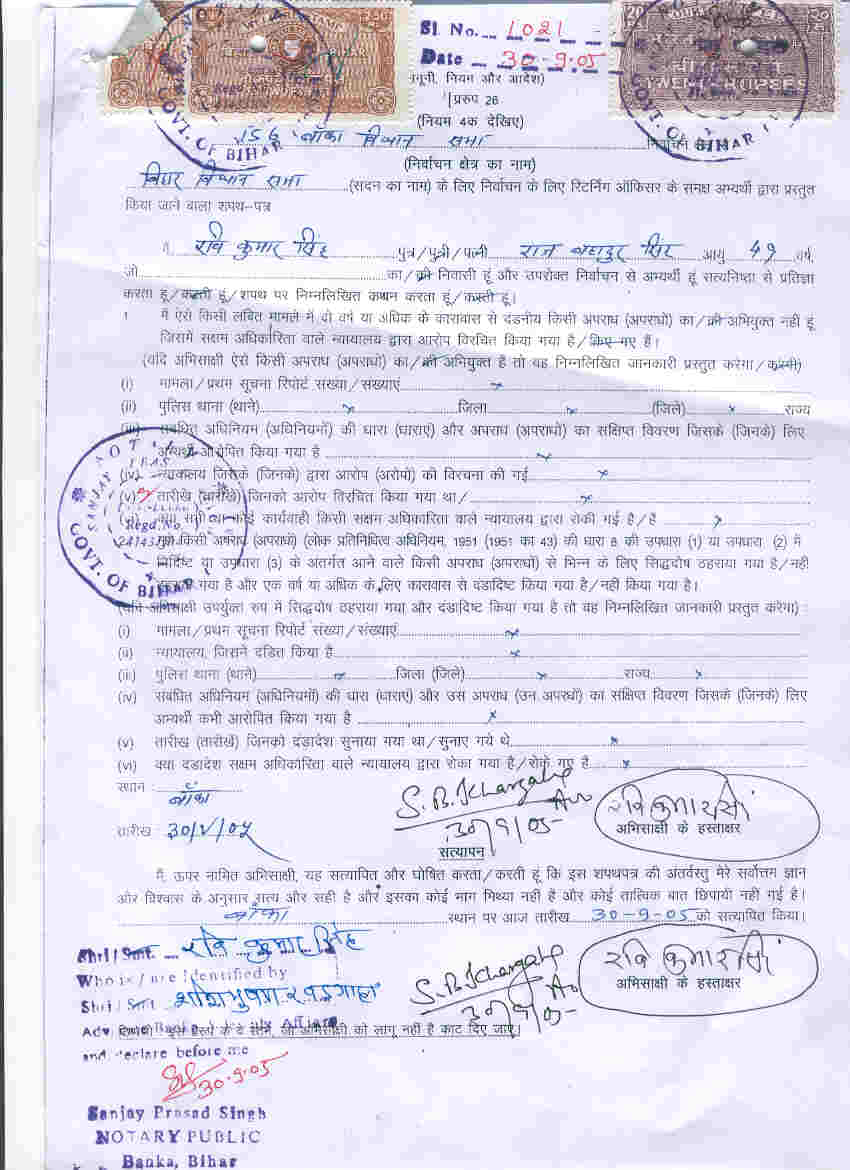 Sl. No. 1021
Date 30-9-05
नियम और आदेश)
प्ररुप 26
(नियम 4क देखिए)
156 बाँका विधान सभा
(निर्वाचन क्षेत्र का नाम)
बिहार विधान सभा (सदन का नाम) के लिए निर्वाचन के लिए रिटर्निंग ऑफिसर के समक्ष अभ्यर्थी द्वारा प्रस्तुत
किया जाने वाला शपथ-पत्र
मैं रवि कुमार सिंह पुत्र/पुत्री/पत्नी राज बहादुर सिंह आयु 49 वर्ष,
जो का/की निवासी हूं और उपरोक्त निर्वाचन से अभ्यर्थी हूं सत्यनिष्ठा से प्रतिज्ञा
करता हूं/करती हूं/शपथ पर निम्नलिखित कथन करता हूं/करती हूं।
1 मैं ऐसे किसी लंबित मामले में दो वर्ष या अधिक के कारावास से दंडनीय किसी अपराध (अपराधों) का/की अभियुक्त नहीं हूं
जिसमें सक्षम अधिकारिता वाले न्यायालय द्वारा आरोप विरचित किया गया है/किए गए हैं।
(यदि अभिसाक्षी ऐसे किसी अपराध (अपराधों) का/की अभियुक्त है तो वह निम्नलिखित जानकारी प्रस्तुत करेगा/करेगी)
(i) मामला/प्रथम सूचना रिपोर्ट संख्या/संख्याएं ×
(ii) पुलिस थाना (थाने) × जिला × (जिले) × राज्य
(iii) संबंधित अधिनियम (अधिनियमों) की धारा (धाराएं) और अपराध (अपराधों) का संक्षिप्त विवरण जिसके (जिनके) लिए
अभ्यर्थी आरोपित किया गया है ×
(iv) न्यायालय जिसके (जिनके) द्वारा आरोप (अरोपों) की विरचना की गई ×
(v) तारीख (तारीखें) जिनको आरोप विरचित किया गया था/ ×
कोई कार्यवाही किसी सक्षम अधिकारिता वाले न्यायालय द्वारा रोकी गई है/है ×
मुझे किसी अपराध (अपराधों) (लोक प्रतिनिधित्व अधिनियम, 1951 (1951 का 43) की धारा 8 की उपधारा (1) या उपधारा (2) में
निर्दिष्ट या उपधारा (3) के अंतर्गत आने वाले किसी अपराध (अपराधों) से भिन्न के लिए सिद्धदोष ठहराया गया है/नहीं
गया है और एक वर्ष या अधिक के लिए कारावास से दंडादिष्ट किया गया है/नहीं किया गया है।
(यदि अभिसाक्षी उपर्युक्त रूप में सिद्धदोष ठहराया गया और दंडादिष्ट किया गया है तो वह निम्नलिखित जानकारी प्रस्तुत करेगा) :
(i) मामला/प्रथम सूचना रिपोर्ट संख्या/संख्याएं ×
(ii) न्यायालय, जिसने दंडित किया है ×
(iii) पुलिस थाना (थाने) × जिला (जिले) × राज्य ×
(iv) संबंधित अधिनियम (अधिनियमों) की धारा (धाराएं) और उस अपराध (उन अपराधों) का संक्षिप्त विवरण जिसके (जिनके) लिए
अभ्यर्थी कभी आरोपित किया गया है ×
(v) तारीख (तारीखें) जिनको दंडादेश सुनाया गया था/सुनाए गये थे ×
(vi) क्या दंडादेश सक्षम अधिकारिता वाले न्यायालय द्वारा रोका गया है/रोके गए है ×
स्थान : बाँका
रवि कुमार सिंह
तारीख : 30/9/05 30/9/05 अभिसाक्षी के हस्ताक्षर
सत्यापन
मैं, ऊपर नामित अभिसाक्षी, यह सत्यापित और घोषित करता/करती हूं कि इस शपथपत्र की अंतर्वस्तु मेरे सर्वोत्तम ज्ञान
और विश्वास के अनुसार सत्य और सही है और इसका कोई भाग मिथ्या नहीं है और कोई तात्विक बात छिपायी नहीं गई है।
बाँका स्थान पर आज तारीख 30-9-05 को सत्यापित किया।
Shri/Smt. रवि कुमार सिंह
रवि कुमार सिंह
Who is/are identified by
अभिसाक्षी के हस्ताक्षर
Shri/Smt
30/9/05
जो अभिसाक्षी को लागू नहीं है काट दिए जाएं।
and declare before me
30-9-05
Sanjay Prasad Singh
NOTARY PUBLIC
Banka, Bihar
GOVT. OF BIHAR
TWENTY RUPEES
GOVT. OF BIHAR
NOTARY
Regd No.
GOVT. OF BIHAR